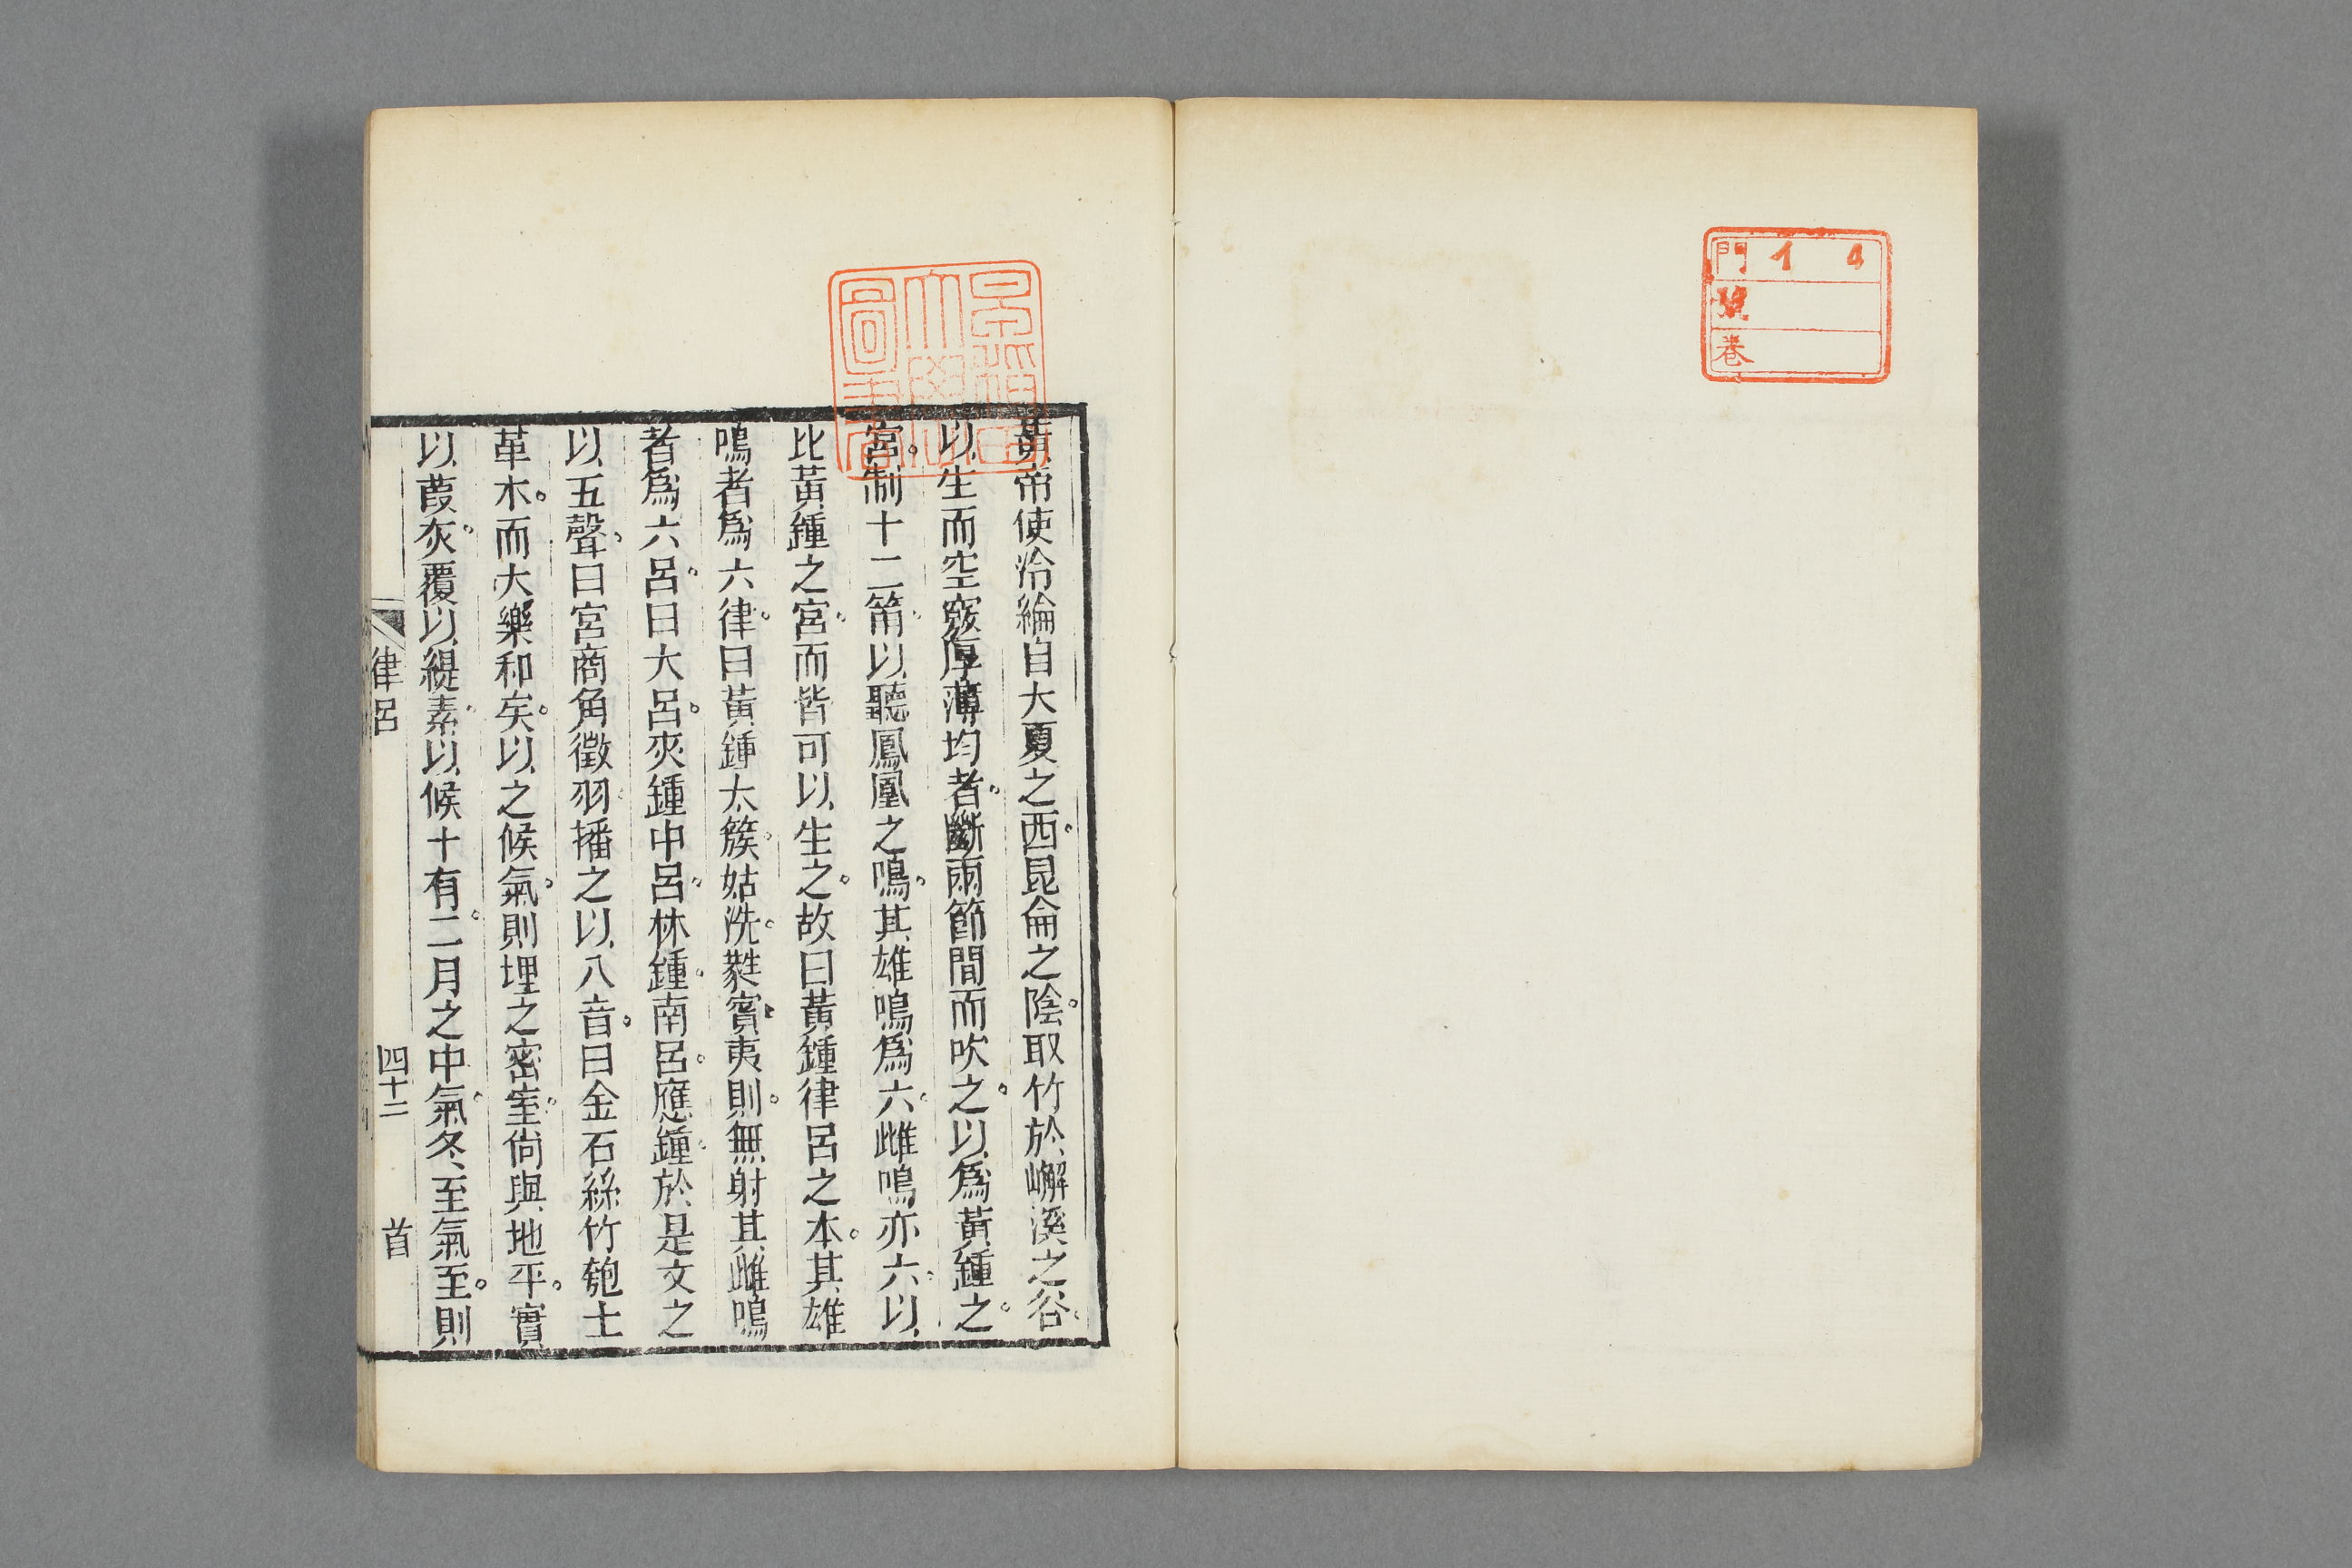 門 イ 4
號
卷
早稲田大學圖書
黃帝使泠綸自大夏之西。昆侖之陰。取竹於嶰溪之谷。
以生而空竅厚薄均者。斷兩節間而吹之。以爲黃鍾之。
宮。制十二筩。以聽鳳凰之鳴。其雄鳴爲六。雌鳴亦六。以
比黃鍾之宮。而皆可以生之。故曰黃鍾律呂之本。其雄
鳴者爲六律。曰黃鍾太簇。姑洗。蕤賓。夷則。無射其雌鳴
者爲六呂。曰大呂。夾鍾中呂。林鍾。南呂。應鍾。於是文之
以五聲。曰宮商角徵羽。播之以八音。曰金石絲竹匏土
革木。而大樂和矣。以之候氣。則埋之密室。倘與地平。實
以葭灰。覆以緹素。以候十有二。月之中氣。冬至氣至。則
律呂
四十二
首